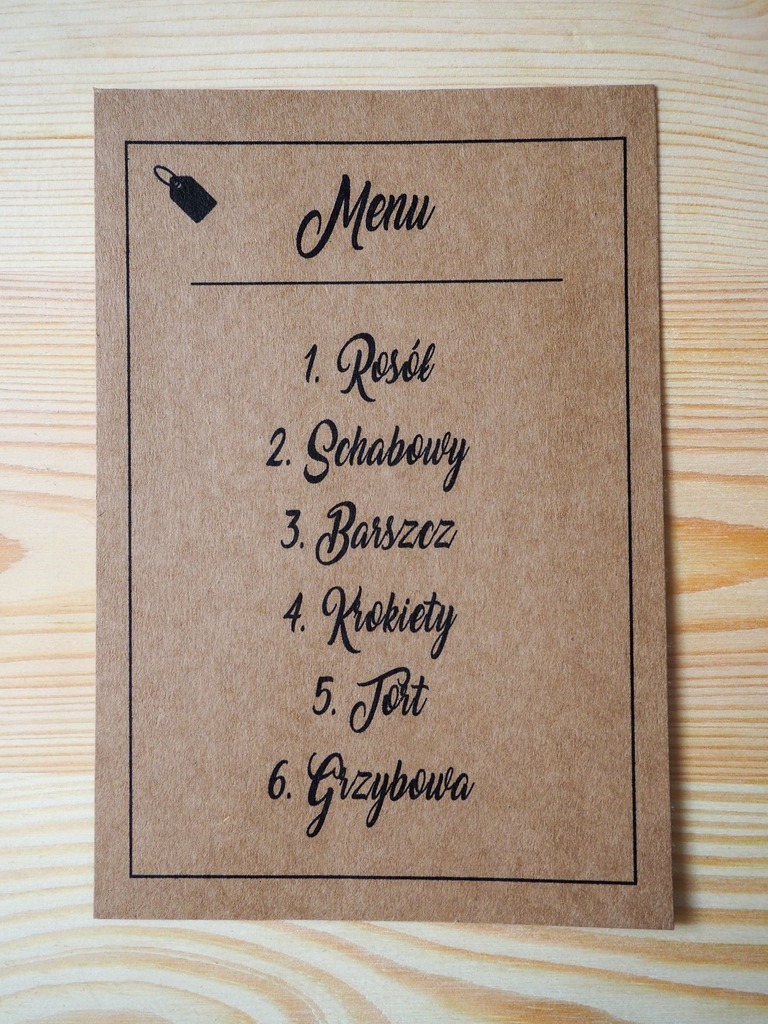 Menu
1. Rosół
2. Schabowy
3. Barszcz
4. Krokiety
5. Tort
6. Grzybowa